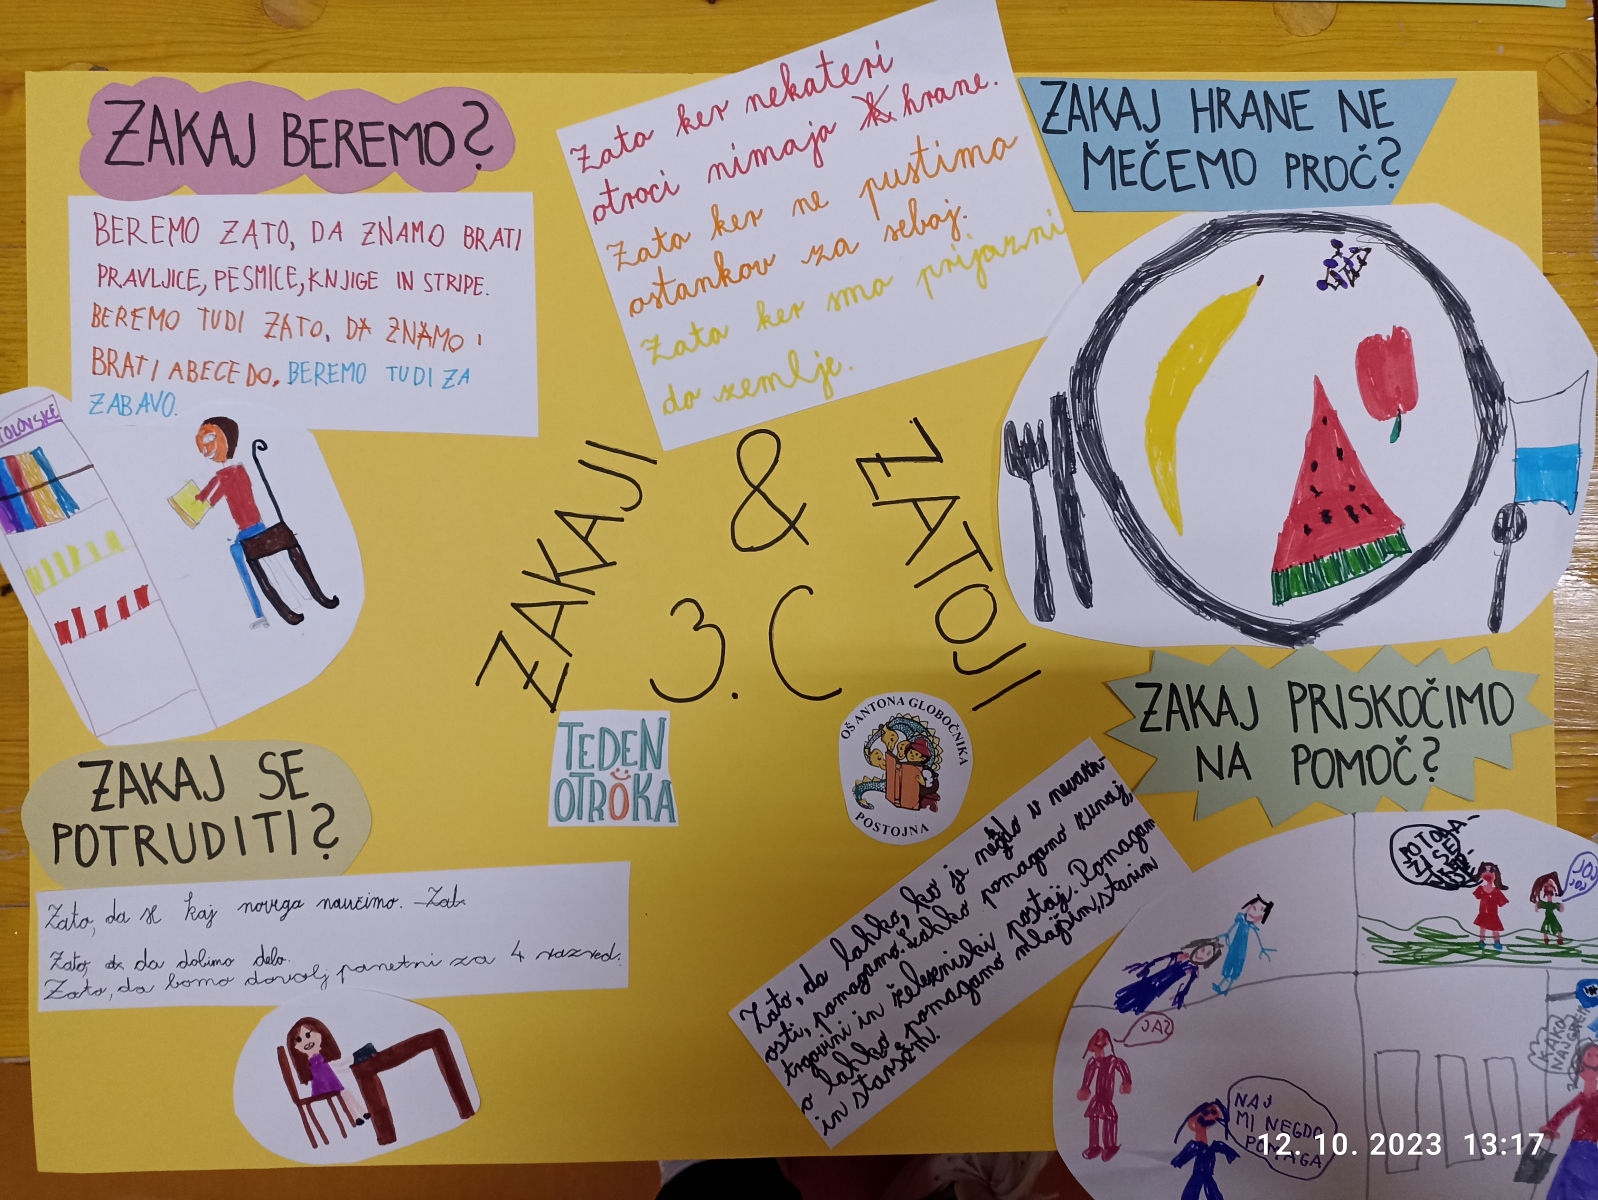 ZAKAJ BEREMO?
BEREMO ZATO, DA ZNAMO BRATI
PRAVLJICE, PESMICE, KNJIGE IN STRIPE.
BEREMO TUDI ZATO, DA ZNAMO
BRATI ABECEDO. BEREMO TUDI ZA
ZABAVO.
TOLOVSKE
Zato ker nekateri
otroci nimajo hrane.
Zato ker ne pustimo
ostankov za seboj.
Zato ker smo prijazni
do zemlje.
ZAKAJ HRANE NE
MEČEMO PROČ?
ZAKAJI & ZATOJI
3. C
TEDEN
OTROKA
OŠ ANTONA GLOBOČNIKA
POSTOJNA
ZAKAJ SE
POTRUDITI?
Zato, da se kaj novega naučimo.
Zato, da dobimo delo.
Zato, da bomo dovolj pametni za 4 razred.
ZAKAJ PRISKOČIMO
NA POMOČ?
Zato, da lahko, ko je nekdo v nevarn-
osti, pomagamo. Lahko pomagamo zunaj,
trgovini in železniski postaji. Pomagam
o lahko pomagamo mlajšim, starim
in staršem.
JOJ
JOJ
JAZ
KAKO
NAJ GREM
NAJ
MI NEGDO
POMAGA
12. 10. 2023 13:17